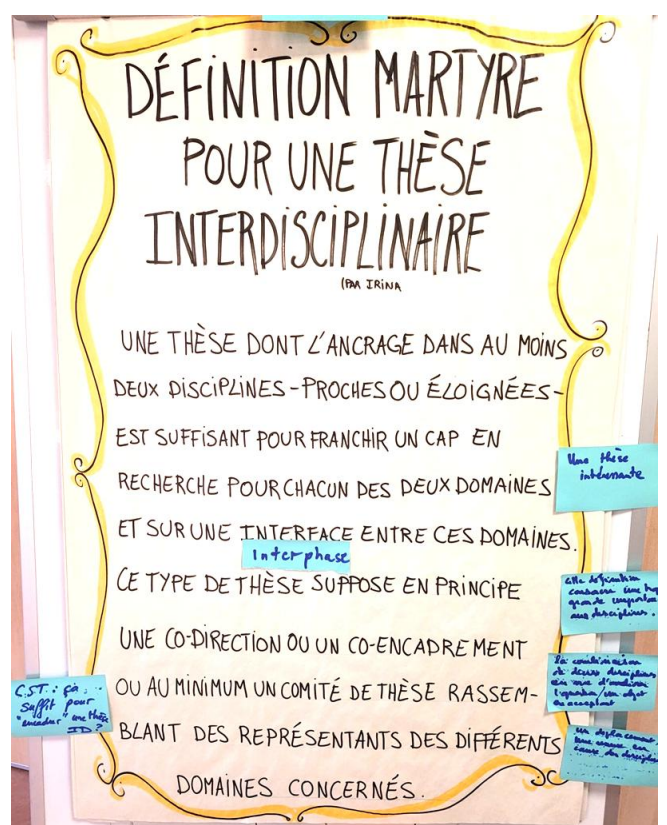 DÉFINITION MARTYRE
POUR UNE THÈSE
INTERDISCIPLINAIRE
(PAR IRINA
UNE THÈSE DONT L'ANCRAGE DANS AU MOINS
DEUX DISCIPLINES - PROCHES OU ÉLOIGNÉES -
EST SUFFISANT POUR FRANCHIR UN CAP EN
RECHERCHE POUR CHACUN DES DEUX DOMAINES
ET SUR UNE INTERFACE ENTRE CES DOMAINES.
Interphase
CE TYPE DE THÈSE SUPPOSE EN PRINCIPE
UNE CO-DIRECTION OU UN CO-ENCADREMENT
OU AU MINIMUM UN COMITÉ DE THÈSE RASSEM-
BLANT DES REPRÉSENTANTS DES DIFFÉRENTS
DOMAINES CONCERNÉS.
Une thèse
intéressante
cette définition
consacre une trop
grande
aux disciplines.
la combinaison
de deux disciplines
en vue d'
un objet
un déplacement
une en
cause des
C.S.T. : ça
suffit pour
"encadrer" une thèse
ID?